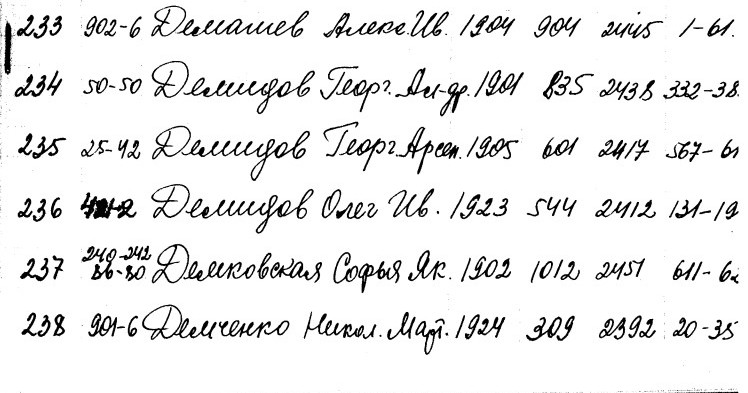 233 902-6 Демашев Алекс. Ив. 1904 904 2445 1-61.
234 50-50 Демидов Георг. Ал-др. 1901 835 2438 332-38
235 25-42 Демидов Георг. Арсен. 1905 601 2417 567-61
236 Демидов Олег Ив. 1923 544 2412 131-19
240-242
237 86-80 Демковская Софья Як. 1902 1012 2451 611-62
238 901-6 Демченко Никол. Март. 1924 309 2392 20-35